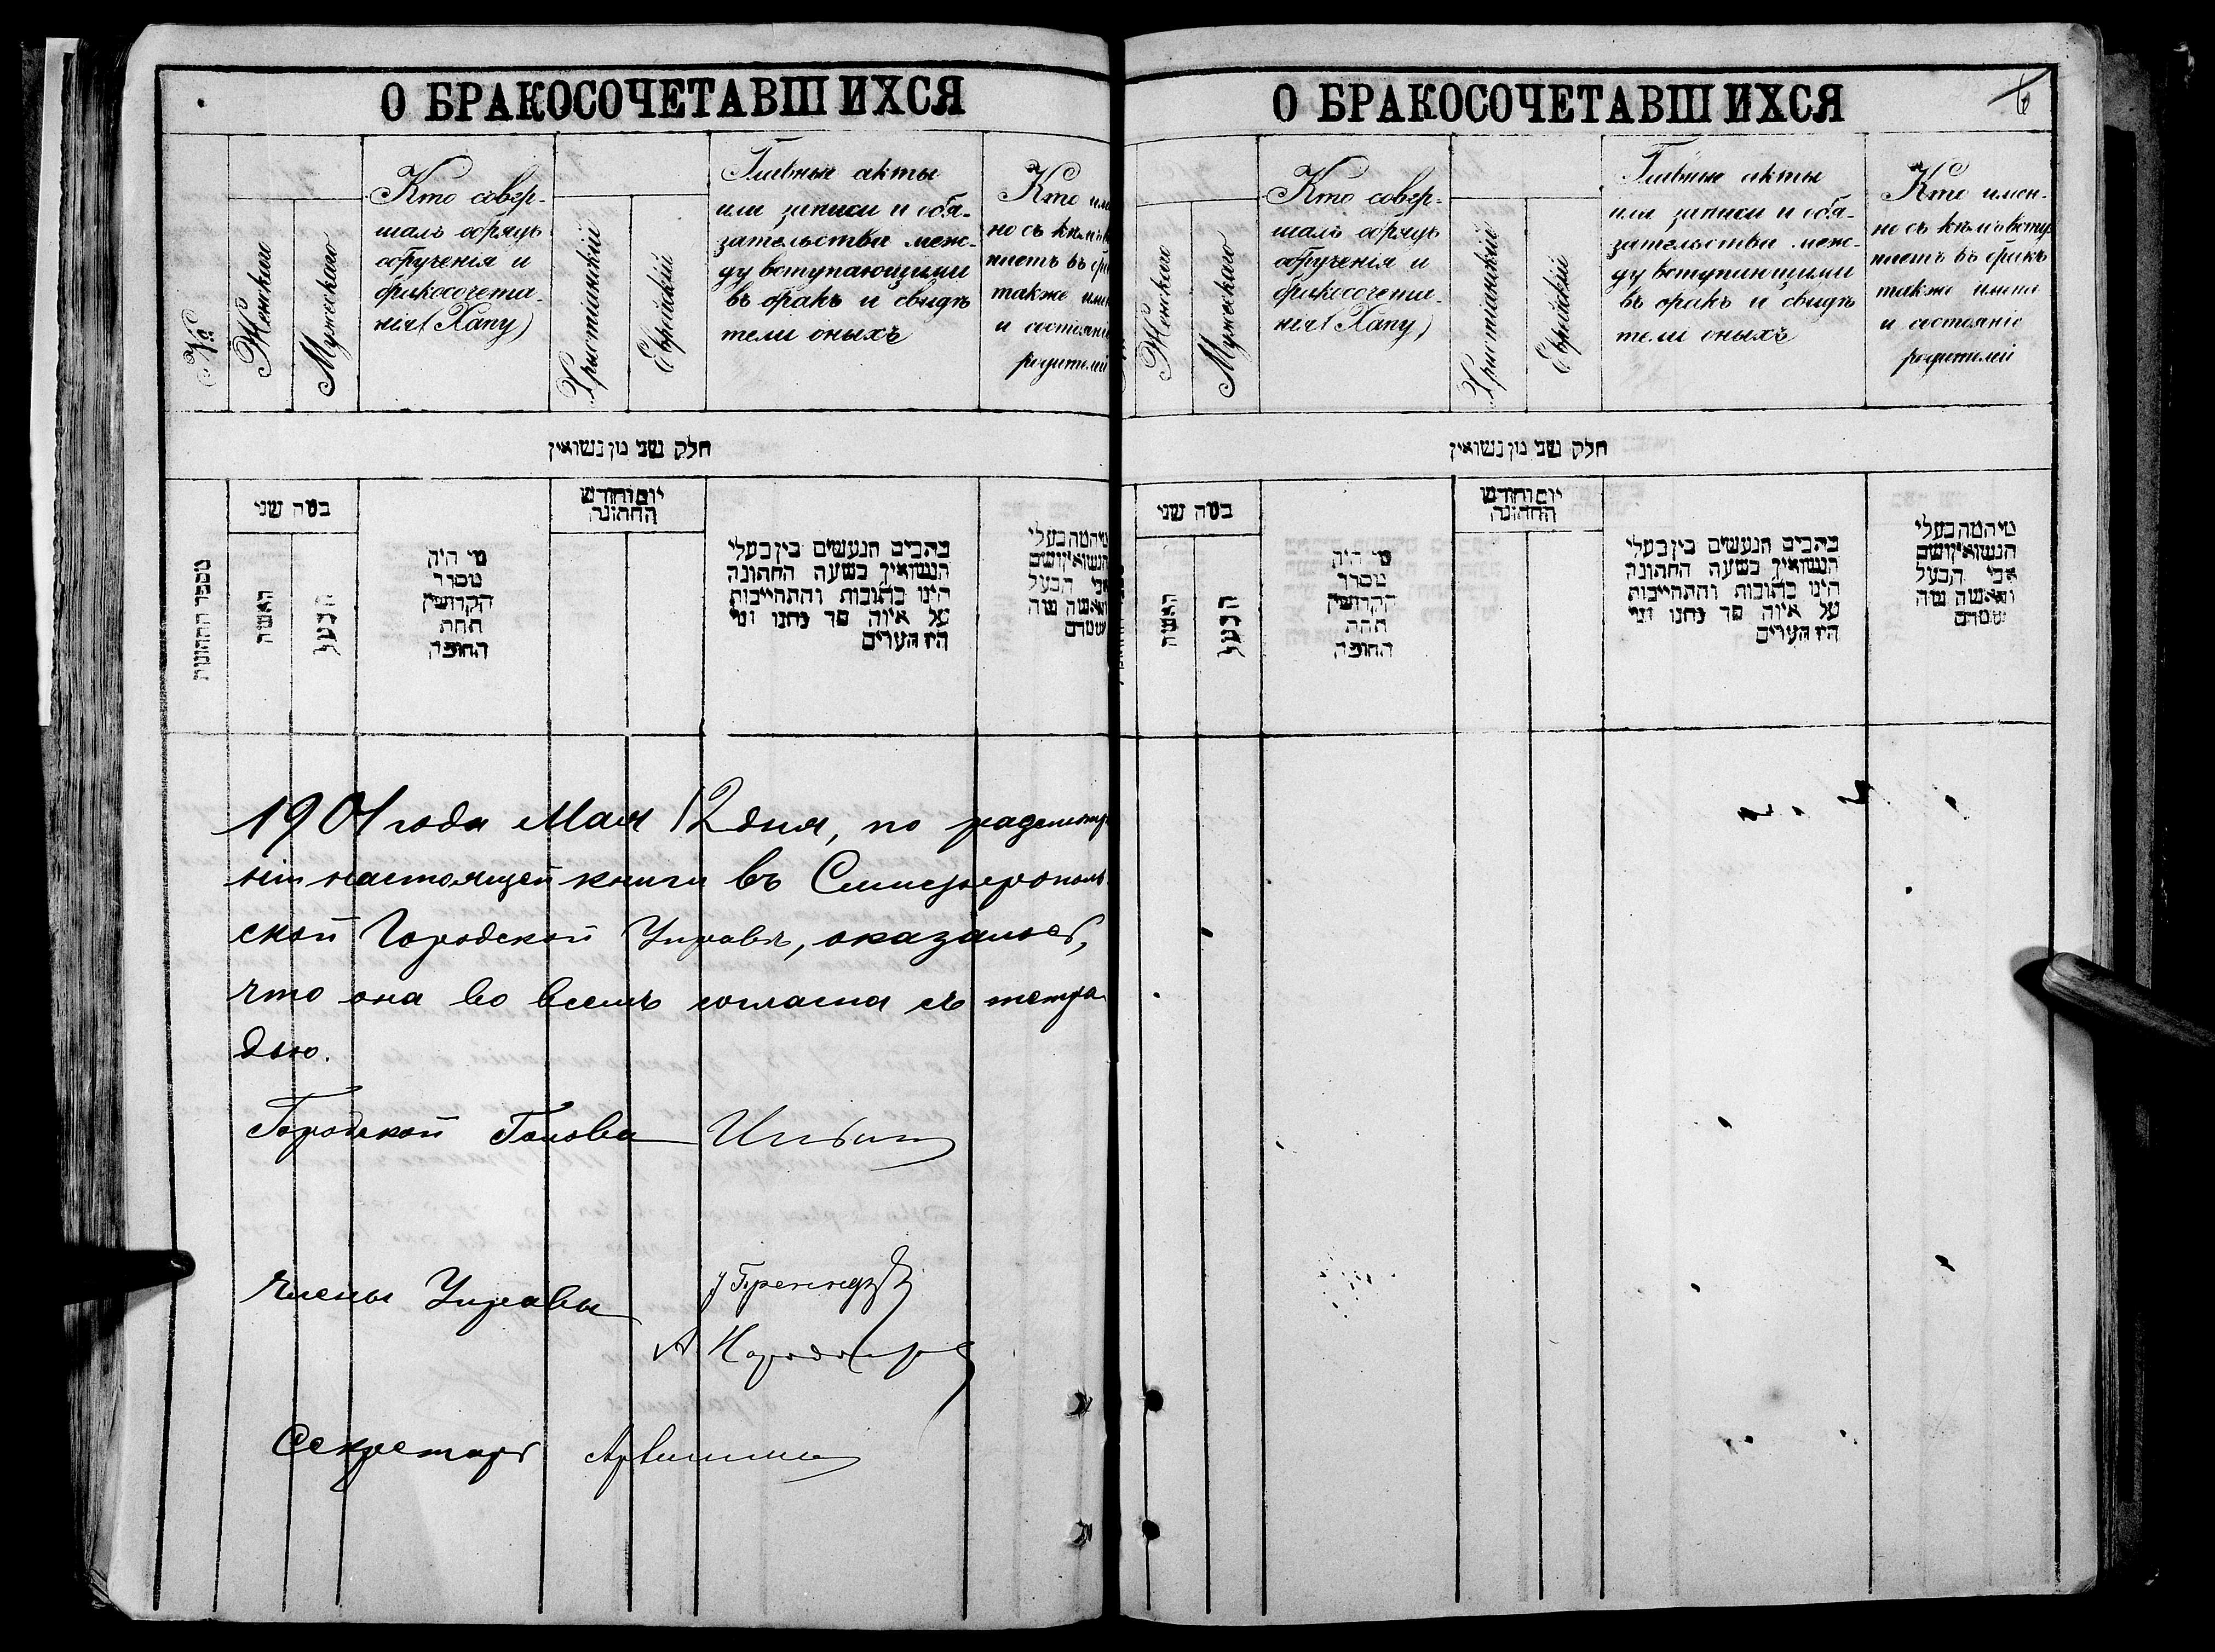 О БРАКОСОЧЕТАВШИХСЯ
№
Женскаго
Мужескаго
Кто совер-
шалъ обрядъ
обрученія и
бракосочета-
нія (Хапу)
Христіанскій
Еврейскій
Главные акты
или записи и обя-
зательства меж-
ду вступающими
въ бракъ и свидѣ
тели оныхъ
Кто
но съ кѣмъ
паетъ въ
также
и состояніе
родителей
חלק שני מן נשואין
מספר החתונות
במה שני
האשה
הבעל
מי היה
מסדר
הקדושין
תחת
החופה
יום וחודש
החתונה
כתבים הנעשים בין בעלי
הנשואין בשעה החתונה
הינו כתובות והתחייבות
על איזה סך נתנו ומי
היו העדים
מיהמה בעלי
הנשואין ושם
אבי הבעל
והאשה מה
שמם
1901 года Мая 12 дня, по разсмотрѣ
ніи настоящей книги въ Симферополь
ской Городской Управѣ, оказалось,
что она во всемъ согласна съ тетра
дью.
Городской Голова
Члены Управы
Секретарь
О БРАКОСОЧЕТАВШИХСЯ
6
Женскаго
Мужескаго
Кто совер-
шалъ обрядъ
обрученія и
бракосочета-
нія (Хапу)
Христіанскій
Еврейскій
Главные акты
или записи и обя-
зательства меж-
ду вступающими
въ бракъ и свидѣ
тели оныхъ
Кто имен-
но съ кѣмъ вступ
паетъ въ бракъ
также имена
и состояніе
родителей
חלק שני מן נשואין
במה שני
האשה
הבעל
מי היה
מסדר
הקדושין
תחת
החופה
יום וחודש
החתונה
כתבים הנעשים בין בעלי
הנשואין בשעה החתונה
הינו כתובות והתחייבות
על איזה סך נתנו ומי
היו העדים
מיהמה בעלי
הנשואין ושם
אבי הבעל
והאשה מה
שמם